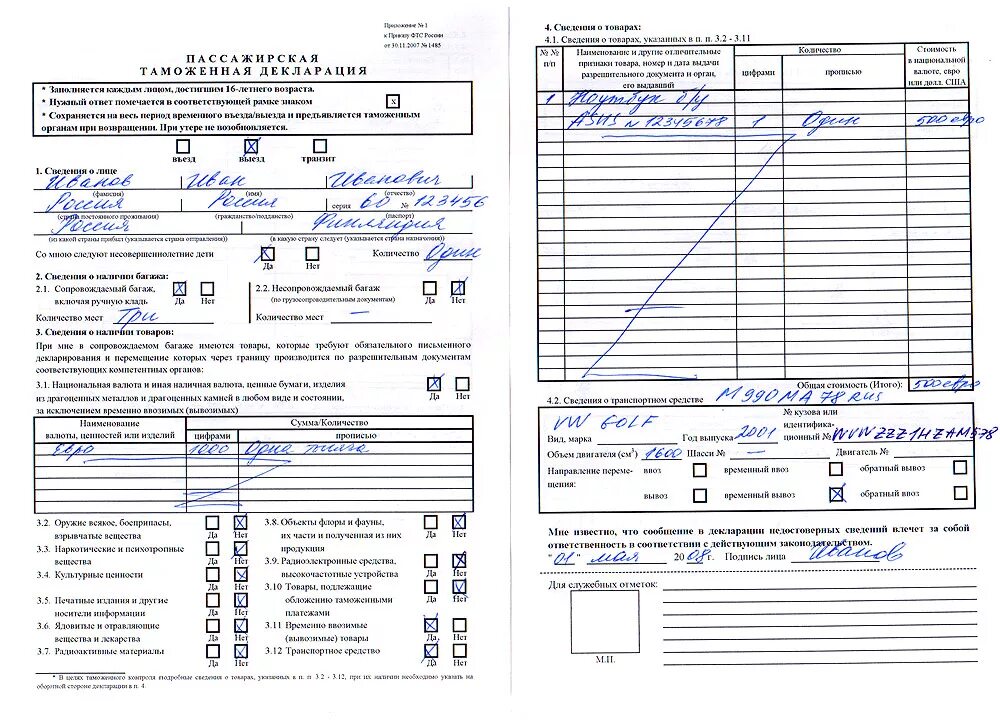 Приложение № 1
к Приказу ФТС России
от 30.11.2007 № 1485
ПАССАЖИРСКАЯ
ТАМОЖЕННАЯ ДЕКЛАРАЦИЯ
* Заполняется каждым лицом, достигшим 16-летнего возраста.
* Нужный ответ помечается в соответствующей рамке знаком x
* Сохраняется на весь период временного въезда/выезда и предъявляется таможенным
органам при возвращении. При утере не возобновляется.
въезд выезд транзит
1. Сведения о лице
Иванов Иван Иванович
(фамилия) (имя) (отчество)
Россия Россия серия 60 № 123456
(страна постоянного проживания) (гражданство/подданство) (паспорт)
Россия Финляндия
(из какой страны прибыл (указывается страна отправления)) (в какую страну следует (указывается страна назначения))
Со мною следуют несовершеннолетние дети Да Нет Количество Один
2. Сведения о наличии багажа:
2.1. Сопровождаемый багаж,
включая ручную кладь Да Нет
Количество мест Три
2.2. Несопровождаемый багаж
(по грузосопроводительным документам) Да Нет
Количество мест —
3. Сведения о наличии товаров:
При мне в сопровождаемом багаже имеются товары, которые требуют обязательного письменного
декларирования и перемещение которых через границу производится по разрешительным документам
соответствующих компетентных органов:
3.1. Национальная валюта и иная наличная валюта, ценные бумаги, изделия
из драгоценных металлов и драгоценных камней в любом виде и состоянии,
за исключением временно ввозимых (вывозимых) Да Нет
Наименование Сумма/Количество
валюты, ценностей или изделий цифрами прописью
Евро 1000 Одна тысяча
3.2. Оружие всякое, боеприпасы,
взрывчатые вещества Да Нет
3.3. Наркотические и психотропные
вещества Да Нет
3.4. Культурные ценности Да Нет
3.5. Печатные издания и другие
носители информации Да Нет
3.6. Ядовитые и отравляющие
вещества и лекарства Да Нет
3.7. Радиоактивные материалы Да Нет
3.8. Объекты флоры и фауны,
их части и полученная из них Да Нет
продукция
3.9. Радиоэлектронные средства,
высокочастотные устройства Да Нет
3.10 Товары, подлежащие
обложению таможенными Да Нет
платежами
3.11 Временно ввозимые
(вывозимые) товары Да Нет
3.12 Транспортное средство Да Нет
* В целях таможенного контроля подробные сведения о товарах, указанных в п. п 3.2 - 3.12, при их наличии необходимо указать на
оборотной стороне декларации в п. 4.
4. Сведения о товарах:
4.1. Сведения о товарах, указанных в п. п. 3.2 - 3.11
№ № п/п
Наименование и другие отличительные
признаки товара, номер и дата выдачи
разрешительного документа и орган,
его выдавший
Количество
цифрами прописью
Стоимость
в национальной
валюте, евро
или долл. США
1 Ноутбук б/у
ASUS N 12345678 1 Один 500 евро
Общая стоимость (Итого): 500 евро
4.2. Сведения о транспортном средстве М 990 МА 78 RUS
VW GOLF
Вид, марка Год выпуска 2001
№ кузова или
идентифика-
ционный №
Объем двигателя (см³) 1600 Шасси № — Двигатель №
Направление переме-
щения:
ввоз временный ввоз обратный вывоз
вывоз временный вывоз обратный ввоз
Мне известно, что сообщение в декларации недостоверных сведений влечет за собой
ответственность в соответствии с действующим законодательством.
"01" мая 2008г. Подпись лица Иванов
Для служебных отметок:
М.П.